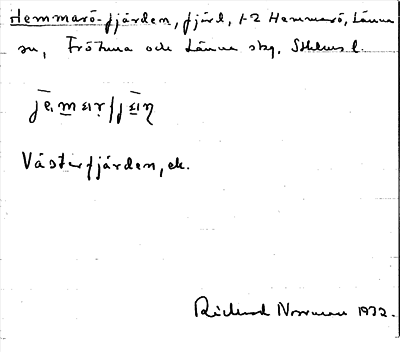 Hemmarö-fjärden, fjärd, 1-2 Hemmarö, Länna
sn, Frötuna och Länna skg, Sthlms l.
Västerfjärden, ek.
Rickard Norrman 1932.